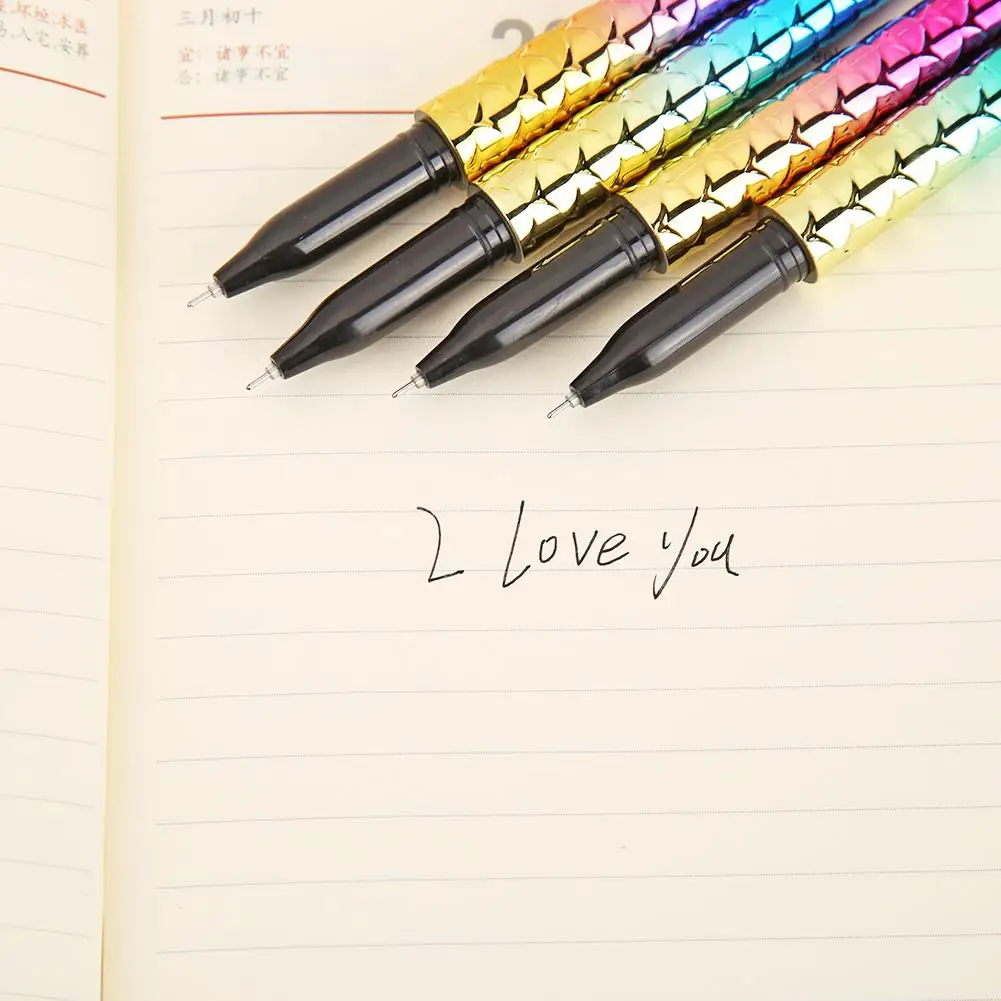 坏垣,求医
入宅,安葬
三月初十
宜: 诸事不宜
忌: 诸事不宜
2
I Love you